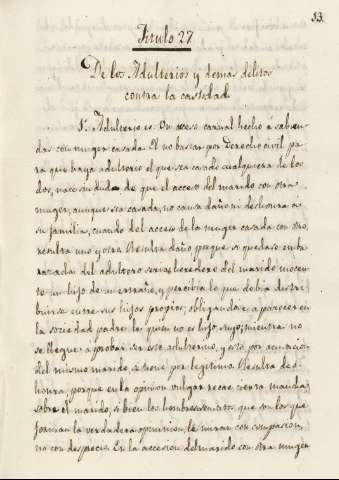 53.
Titulo 27
De los Adulterios y demas delitos
contra la castidad
1. Adulterio es: Un acceso carnal hecho á sabien-
das con muger casada. El no bastar por Derecho civil pa-
ra que haya adulterio el que sea casado cualquiera de los
dos, nace sin duda de que el acceso del marido con otra
muger, aunque sea casada, no causa daño ni deshonra a
su familia, cuando del acceso de la muger casada con otro,
resulta uno y otro. Resulta daño porque si quedase emba-
razada del adultero seria heredero del marido inocen-
te un hijo de un estraño, y percibiria lo que debia distri-
buirse entre sus hijos propios, obligandose a parecer en
la sociedad padre de quien no es hijo suyo, mientras no
se llegue a probar ser este adulterino, y esto por acusacion
del mismo marido, se tiene por legitimo. Resulta des-
honra, porque en la opinion vulgar recae cierta mancha
sobre el marido, si bien los hombres sensatos, que son los que
forman la verdadera opinion, le miran con compasion,
no con desprecio. En la accesion del marido con otra muger